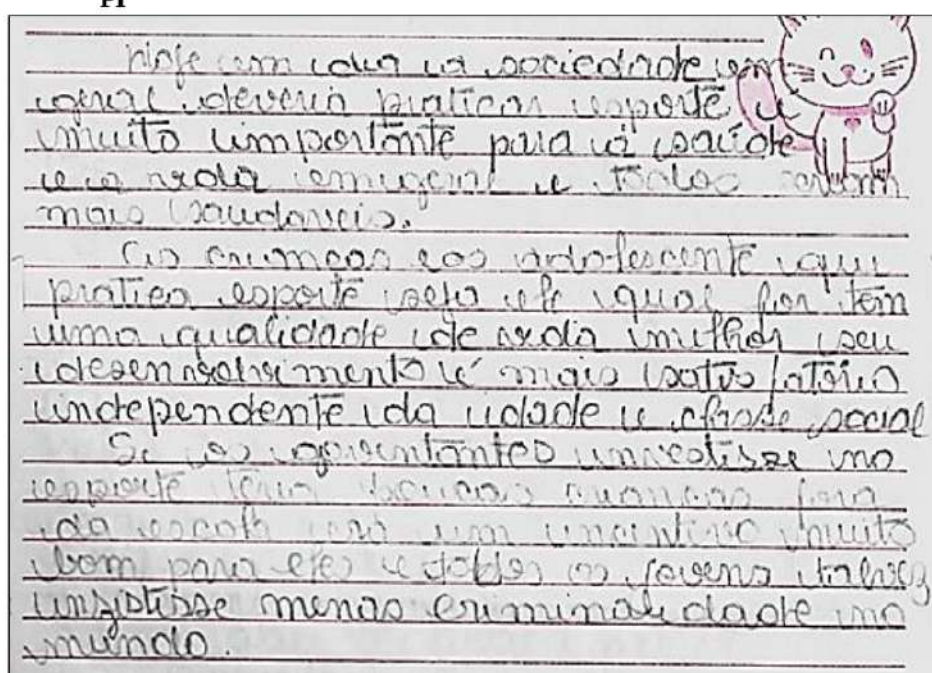 Hoje em dia a sociedade em
geral deveria praticar esporte é
muito importante para a saúde
e a vida em geral e todos
mais saudaveis.
As crianças e os adolescente que
pratica esporte seja ele qual for tem
uma qualidade de vida melhor seu
desenvolvimento é mais satisfatório
independente da idade e classe social
Se os governantes investisse no
esporte teria crianças fora
da escola um incentivo muito
bom para eles e todos os jovens talvez
menas criminalidade no
mundo.